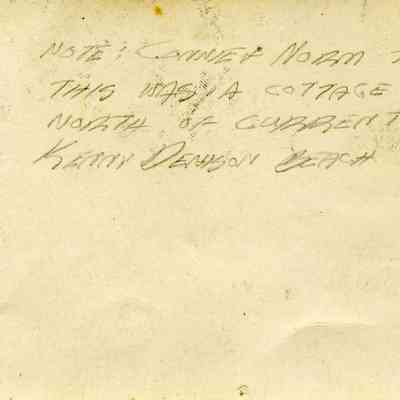 NOTE: CONNEF NORM
THIS WAS A COTTAGE
NORTH OF CURRENT
KERRY DENISON BEACH